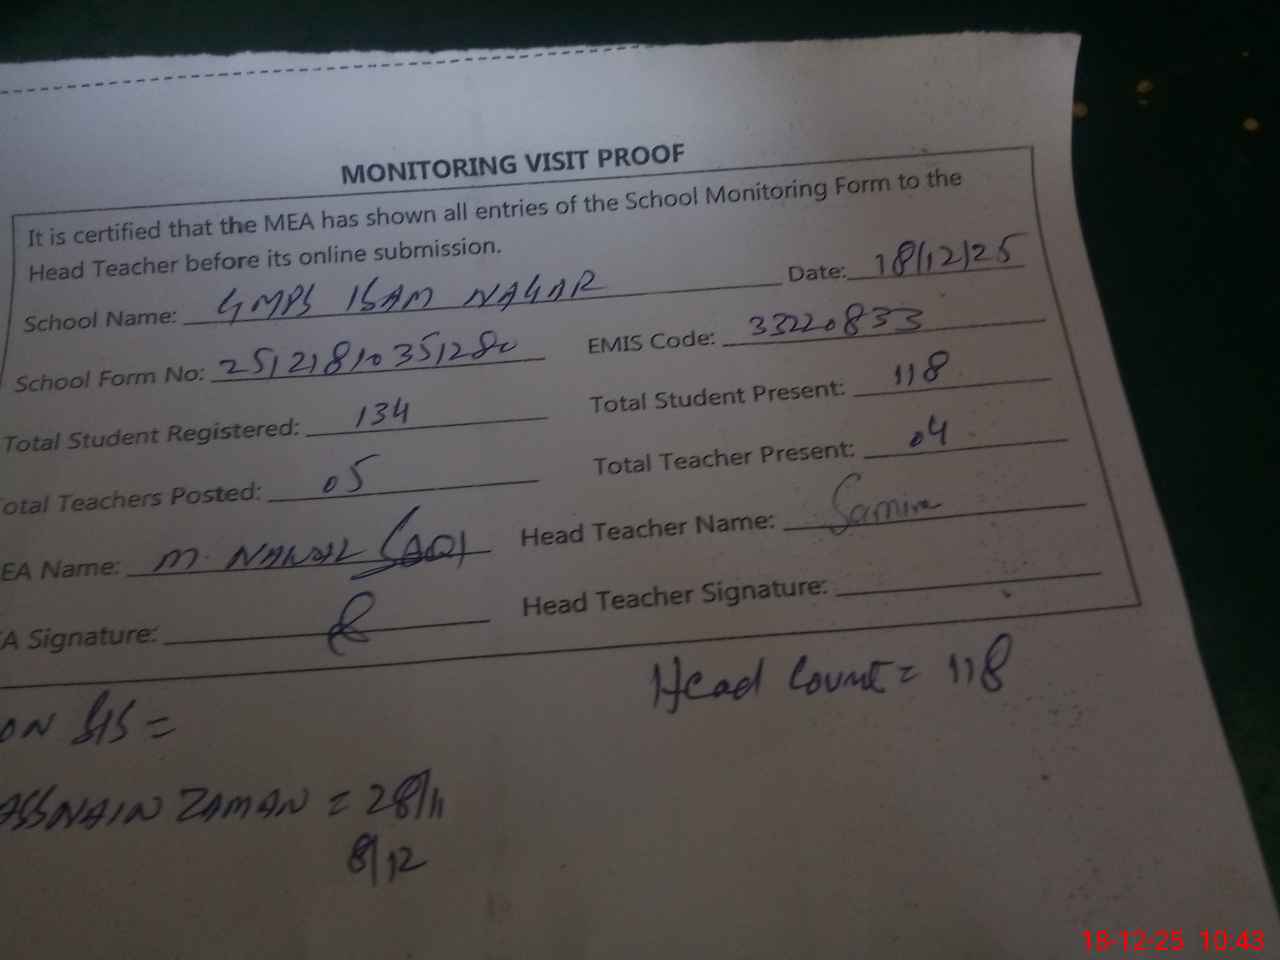 MONITORING VISIT PROOF
It is certified that the MEA has shown all entries of the School Monitoring Form to the
Head Teacher before its online submission.
School Name: GMPS ISAM NAGAR Date: 18/12/25
School Form No: 2512181035128 EMIS Code: 33220833
Total Student Registered: 134 Total Student Present: 118
otal Teachers Posted: 05 Total Teacher Present: 04
EA Name: M. Head Teacher Name: Samina
A Signature: Head Teacher Signature:
Head Count = 118
ON SIS =
ASSNAIN ZAMAN = 28/11
8/12
18-12-25 10:43